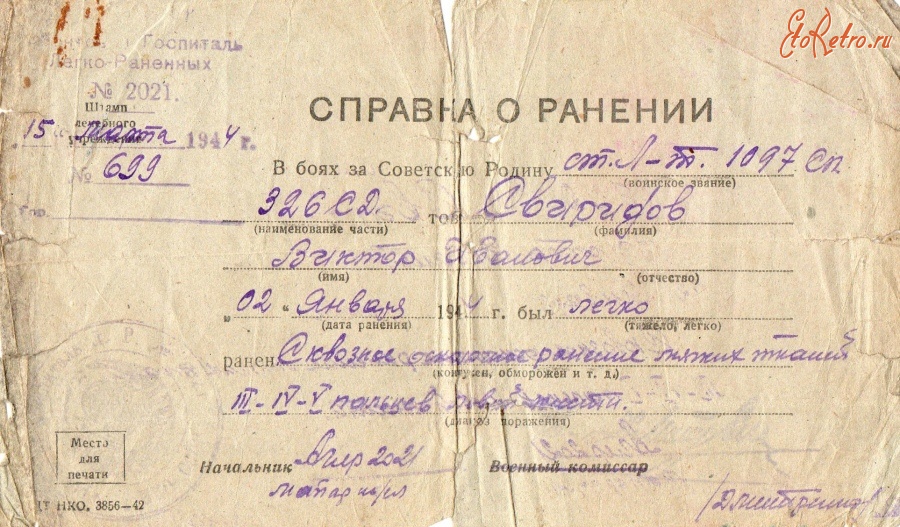 EtoRetro.ru
Госпиталь
Легко-Раненных
№ 2021.
Штамп
лечебного
учреждения
15 марта 1944 г.
№ 699
СПРАВКА О РАНЕНИИ
В боях за Советскую Родину ст. Л-т. 1097 сп
(воинское звание)
326 СД тов Свиридов
(наименование части) (фамилия)
Виктор Иванович
(имя) (отчество)
„02 “ Января 1944 г. был легко
(дата ранения) (тяжело, легко)
ранен Сквозное ранение мягких тканей
(контужен, обморожен и т. д.)
III-IV-V пальцев левой кисти.
(диагноз поражения)
Место
для
печати
Начальник 2021 Военный комиссар
НКО. 3856—42